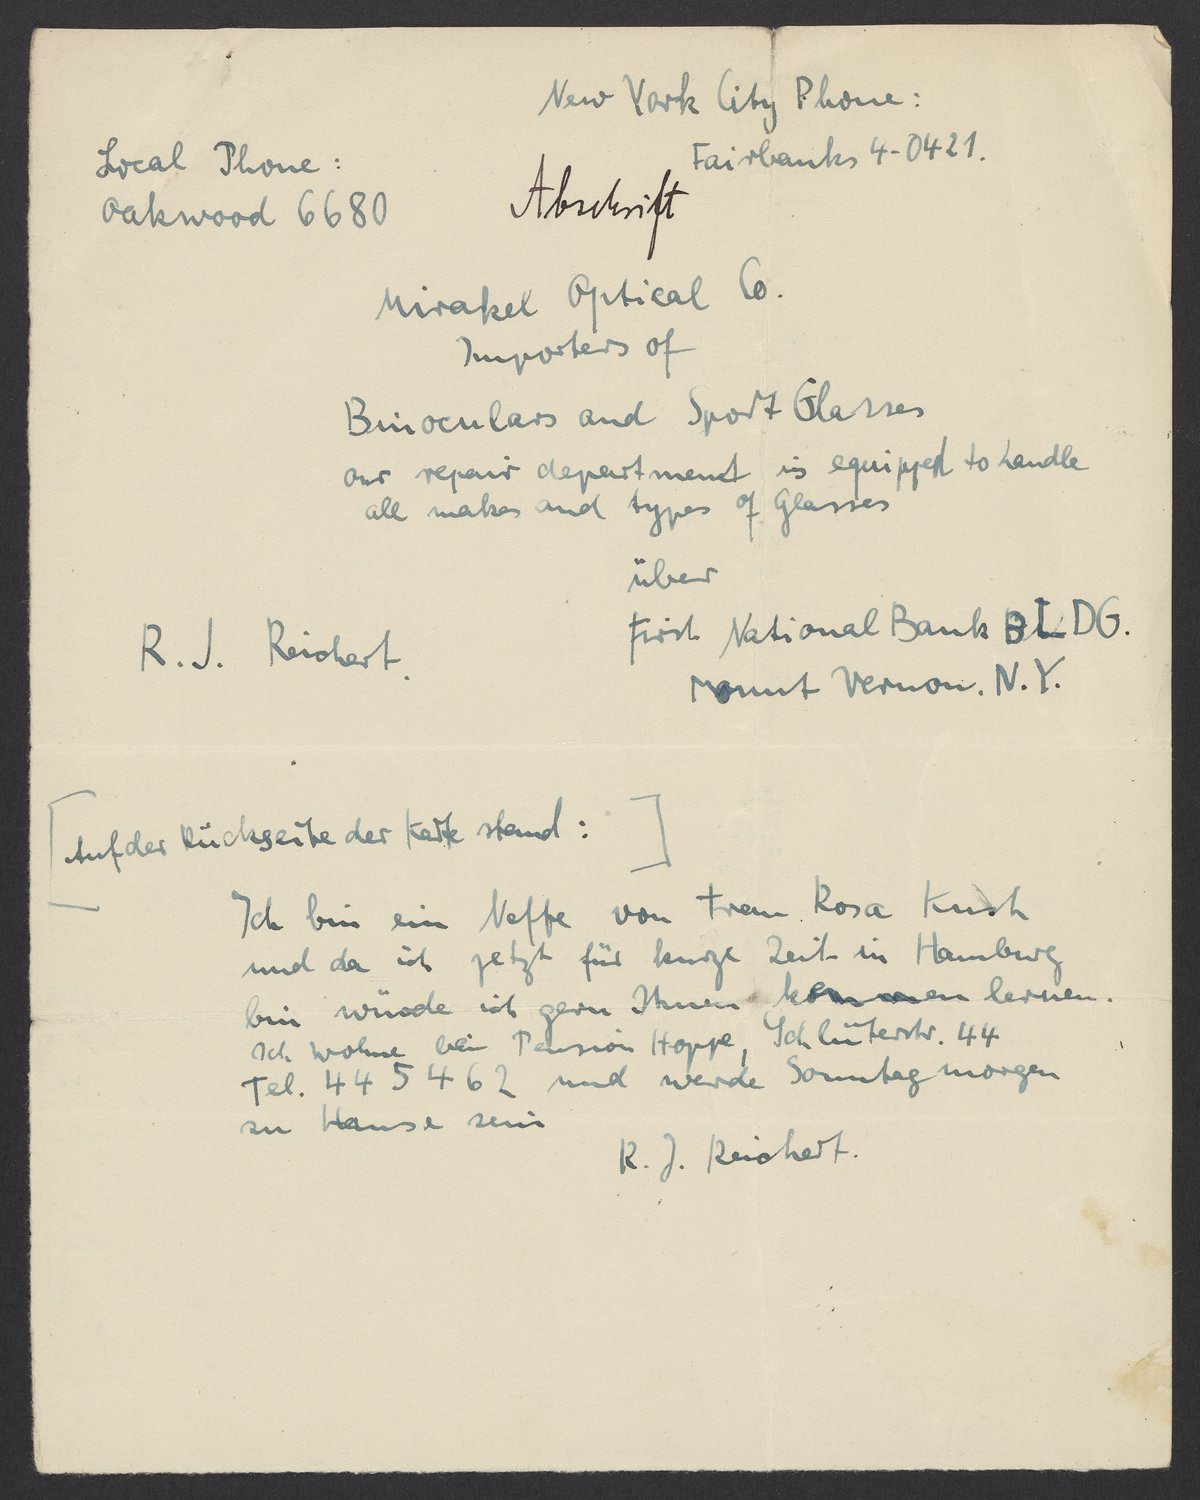 New York City Phone:
Fairbanks 4-0421.
Local Phone:
Oakwood 6680
Abschrift
Mirakel Optical Co.
Importers of
Binoculars and Sport Glasses
our repair department is equipped to handle
all makes and types of Glasses
über
First National Bank BLDG.
R. J. Reichert.
Mount Vernon. N.Y.
[Auf der Rückseite der Karte stand:]
Ich bin ein Neffe von Frau Rosa
und da ich jetzt für kurze Zeit in Hamburg
bin würde ich gern Ihnen kennen lernen.
Ich wohne bei Pension Hoppe, Schlüterstr. 44
Tel. 445462 und werde Sonntag morgen
zu Hause sein
R. J. Reichert.